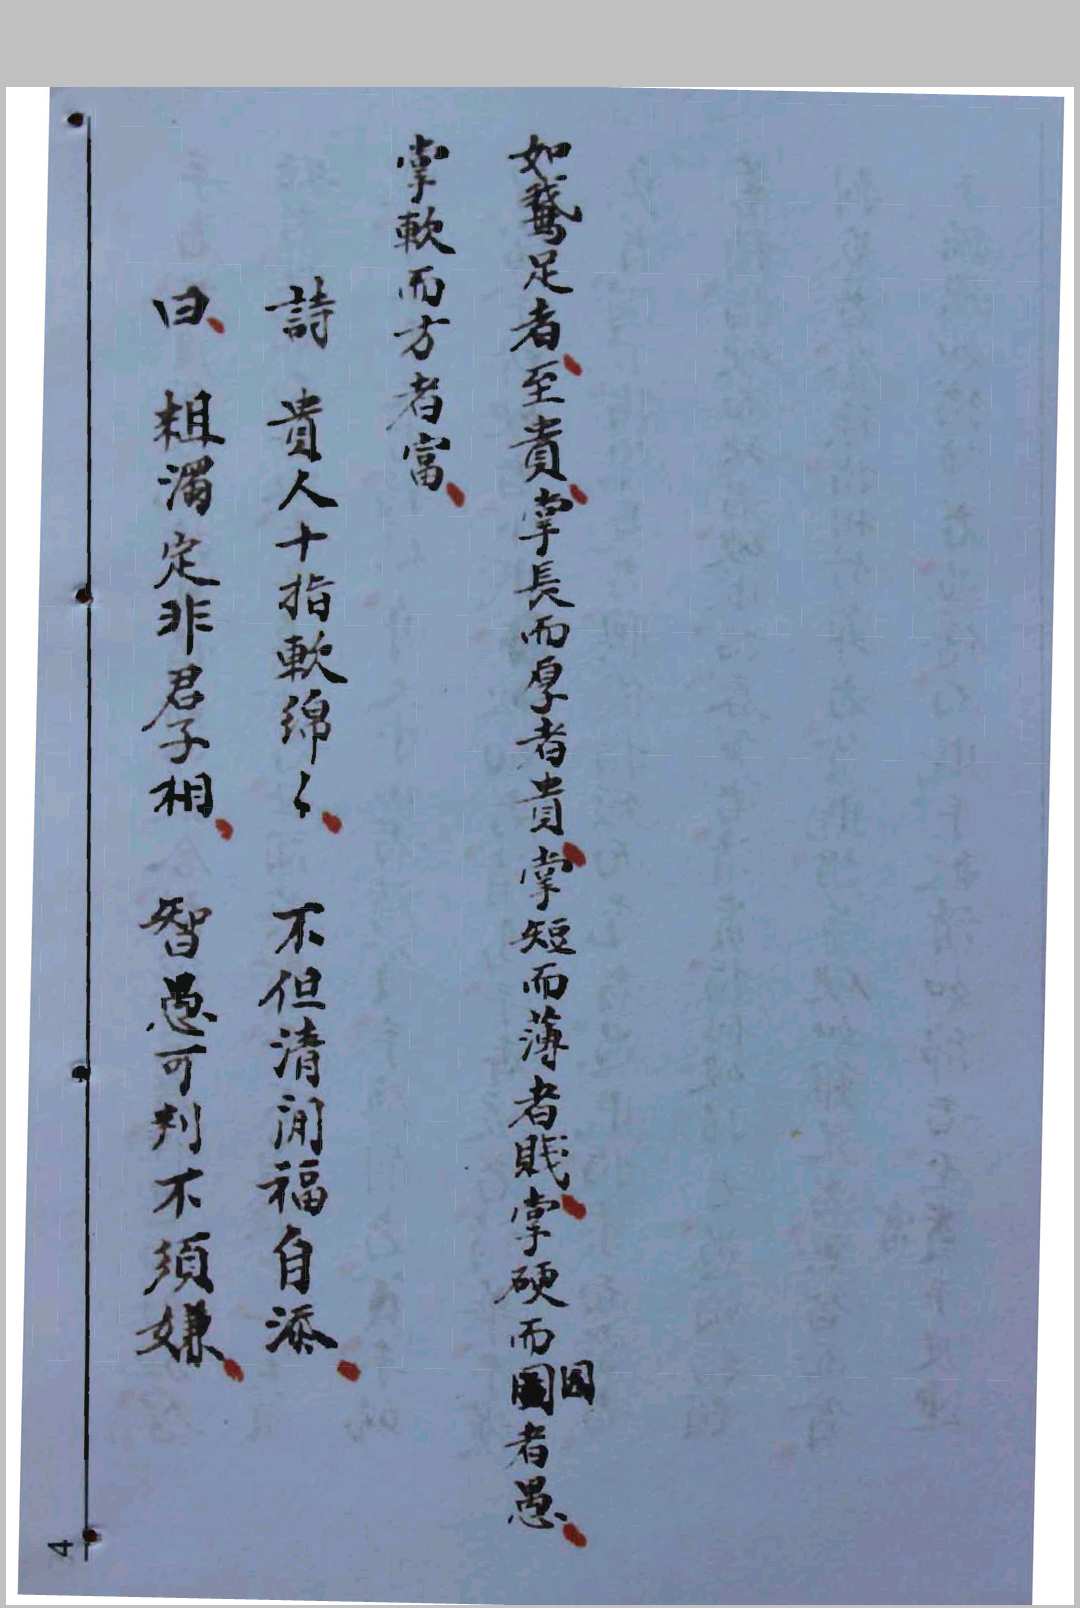 如鵞足者、至貴、掌長而厚者貴、掌短而薄者賤、掌硬而圓者愚、
掌軟而方者富、
詩 貴人十指軟綿〻、 不但清閒福自添、
曰、 粗濁定非君子相、 智愚可判不須嫌、
4